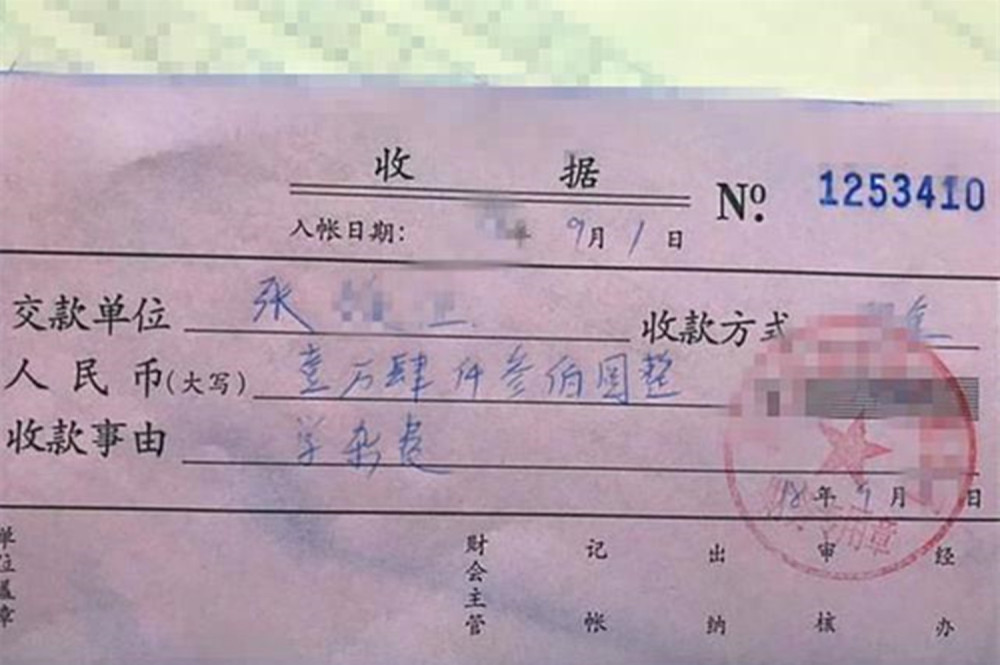 收 据
Nº. 1253410
入帐日期： 年 9月1日
交款单位 张 收款方式
人民币(大写) 壹万肆仟叁佰圆整
收款事由 学杂费
18年9月 日
用章
单位盖章 财会主管 记帐 出纳 审核 经办